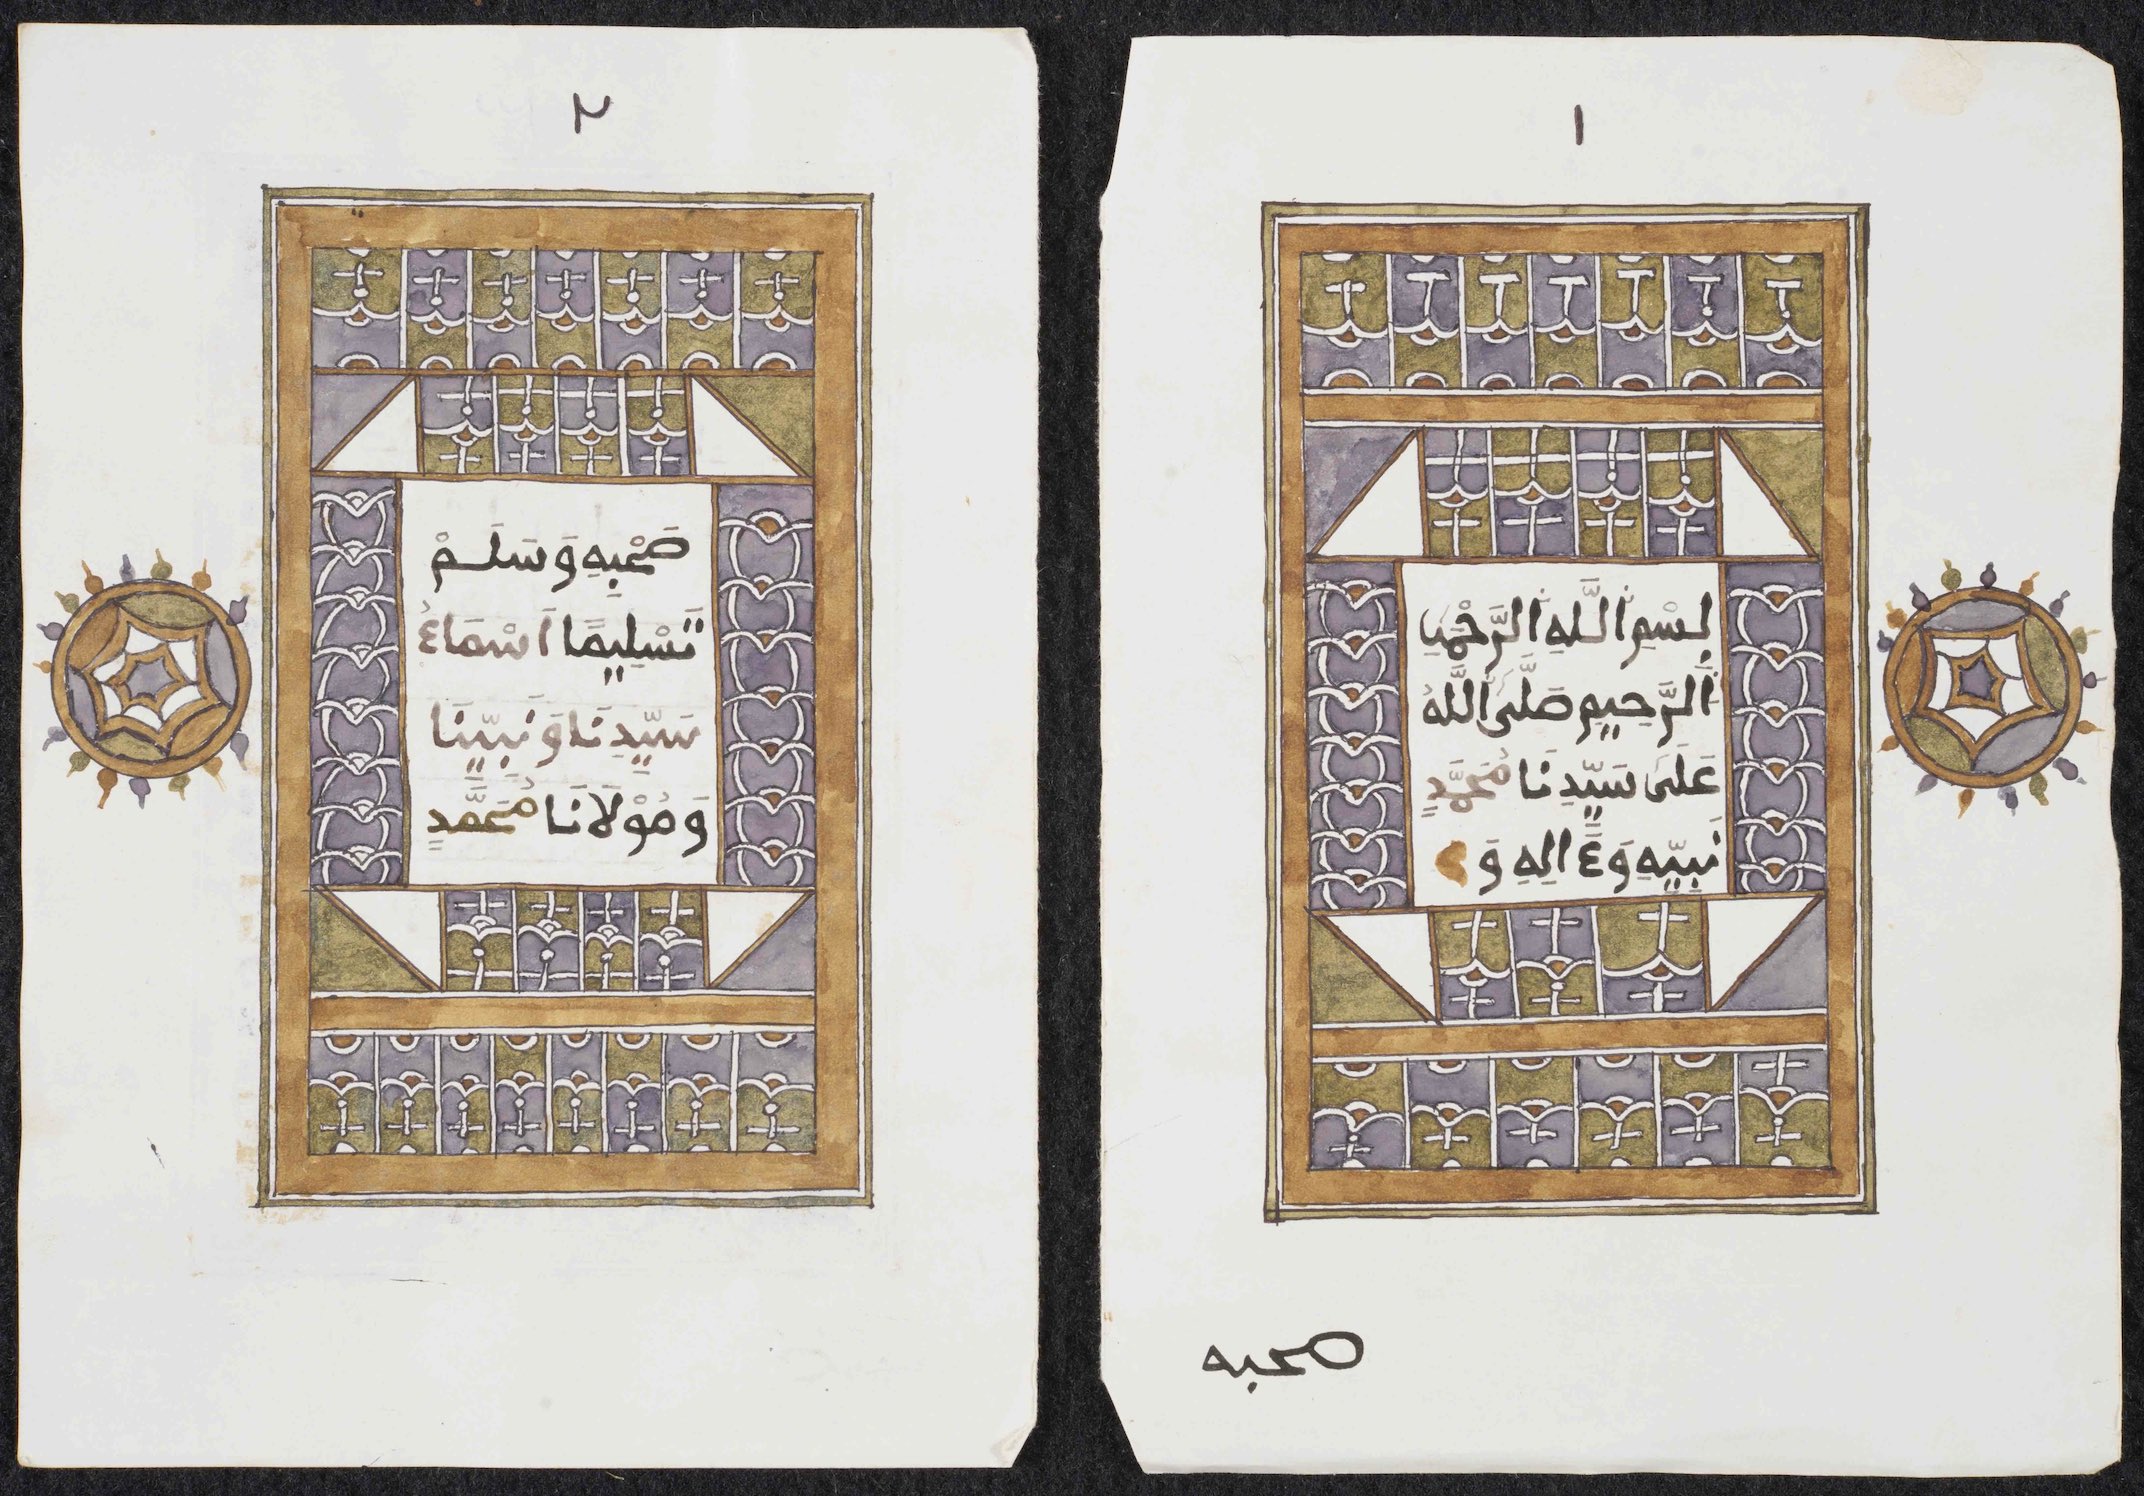 ١
بِسْمِ اللَّهِ الرَّحْمَٰنِ
الرَّحِيمِ صَلَّى اللَّهُ
عَلَى سَيِّدِنَا مُحَمَّدٍ
نَبِيِّهِ وَءَالِهِ وَ
صحبه
٢
صَحْبِهِ وَسَلَّمْ
تَسْلِيمًا اَسْمَاءُ
سَيِّدِنَا وَنَبِيِّنَا
وَمَوْلَانَا مُحَمَّدٍ